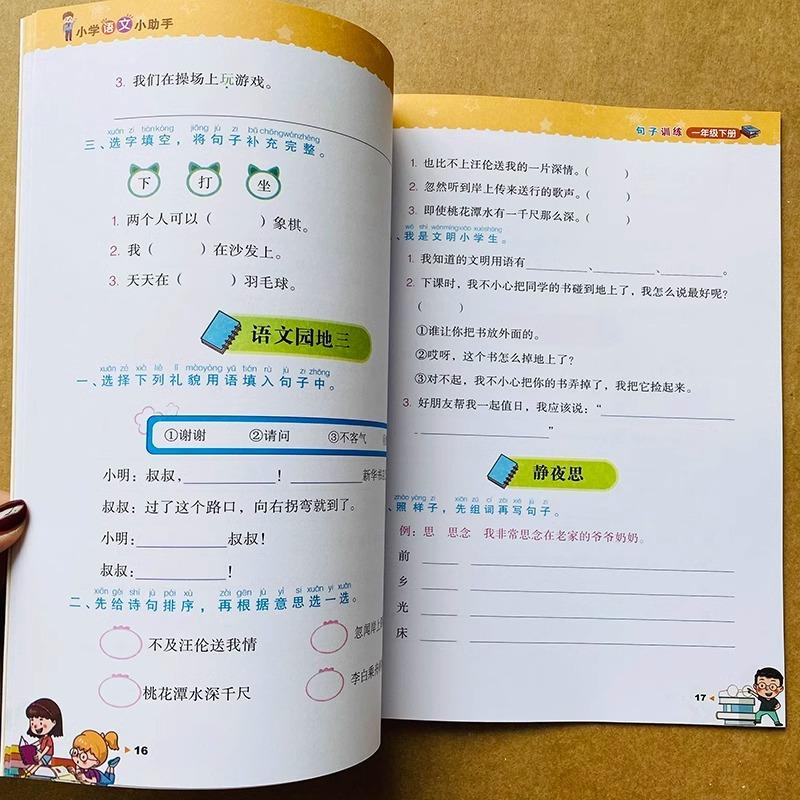 小学语文小助手
3. 我们在操场上玩游戏。
xuǎn zì tiánkòng jiāng jù zi bǔ chōngwánzhěng
三、选字填空，将句子补充完整。
下 打 坐
1. 两个人可以（ ）象棋。
2. 我（ ）在沙发上。
3. 天天在（ ）羽毛球。
语文园地三
xuǎn zé xià liè lǐ màoyòng yǔ tián rù jù zi zhōng
一、选择下列礼貌用语填入句子中。
①谢谢 ②请问 ③不客气
小明：叔叔，__________！__________新华书
叔叔：过了这个路口，向右拐弯就到了。
小明：__________叔叔！
叔叔：__________！
xiān gěi shī jù pái xù zài gēn jù yì si xuǎn yi xuǎn
二、先给诗句排序，再根据意思选一选。
不及汪伦送我情 忽闻岸上
桃花潭水深千尺 李白乘舟
16
句子训练 一年级下册
1. 也比不上汪伦送我的一片深情。（ ）
2. 忽然听到岸上传来送行的歌声。（ ）
3. 即使桃花潭水有一千尺那么深。（ ）
wǒ shì wénmíngxiǎo xuéshēng
、我是文明小学生。
1. 我知道的文明用语有__________、__________、__________。
2. 下课时，我不小心把同学的书碰到地上了，我怎么说最好呢？
（ ）
①谁让你把书放外面的。
②哎呀，这个书怎么掉地上了？
③对不起，我不小心把你的书弄掉了，我把它捡起来。
3. 好朋友帮我一起值日，我应该说：“__________
__________”
静夜思
zhào yàng zi xiān zǔ cí zài xiě jù zi
、照样子，先组词再写句子。
例：思 思念 我非常思念在老家的爷爷奶奶。
前
乡
光
床
17